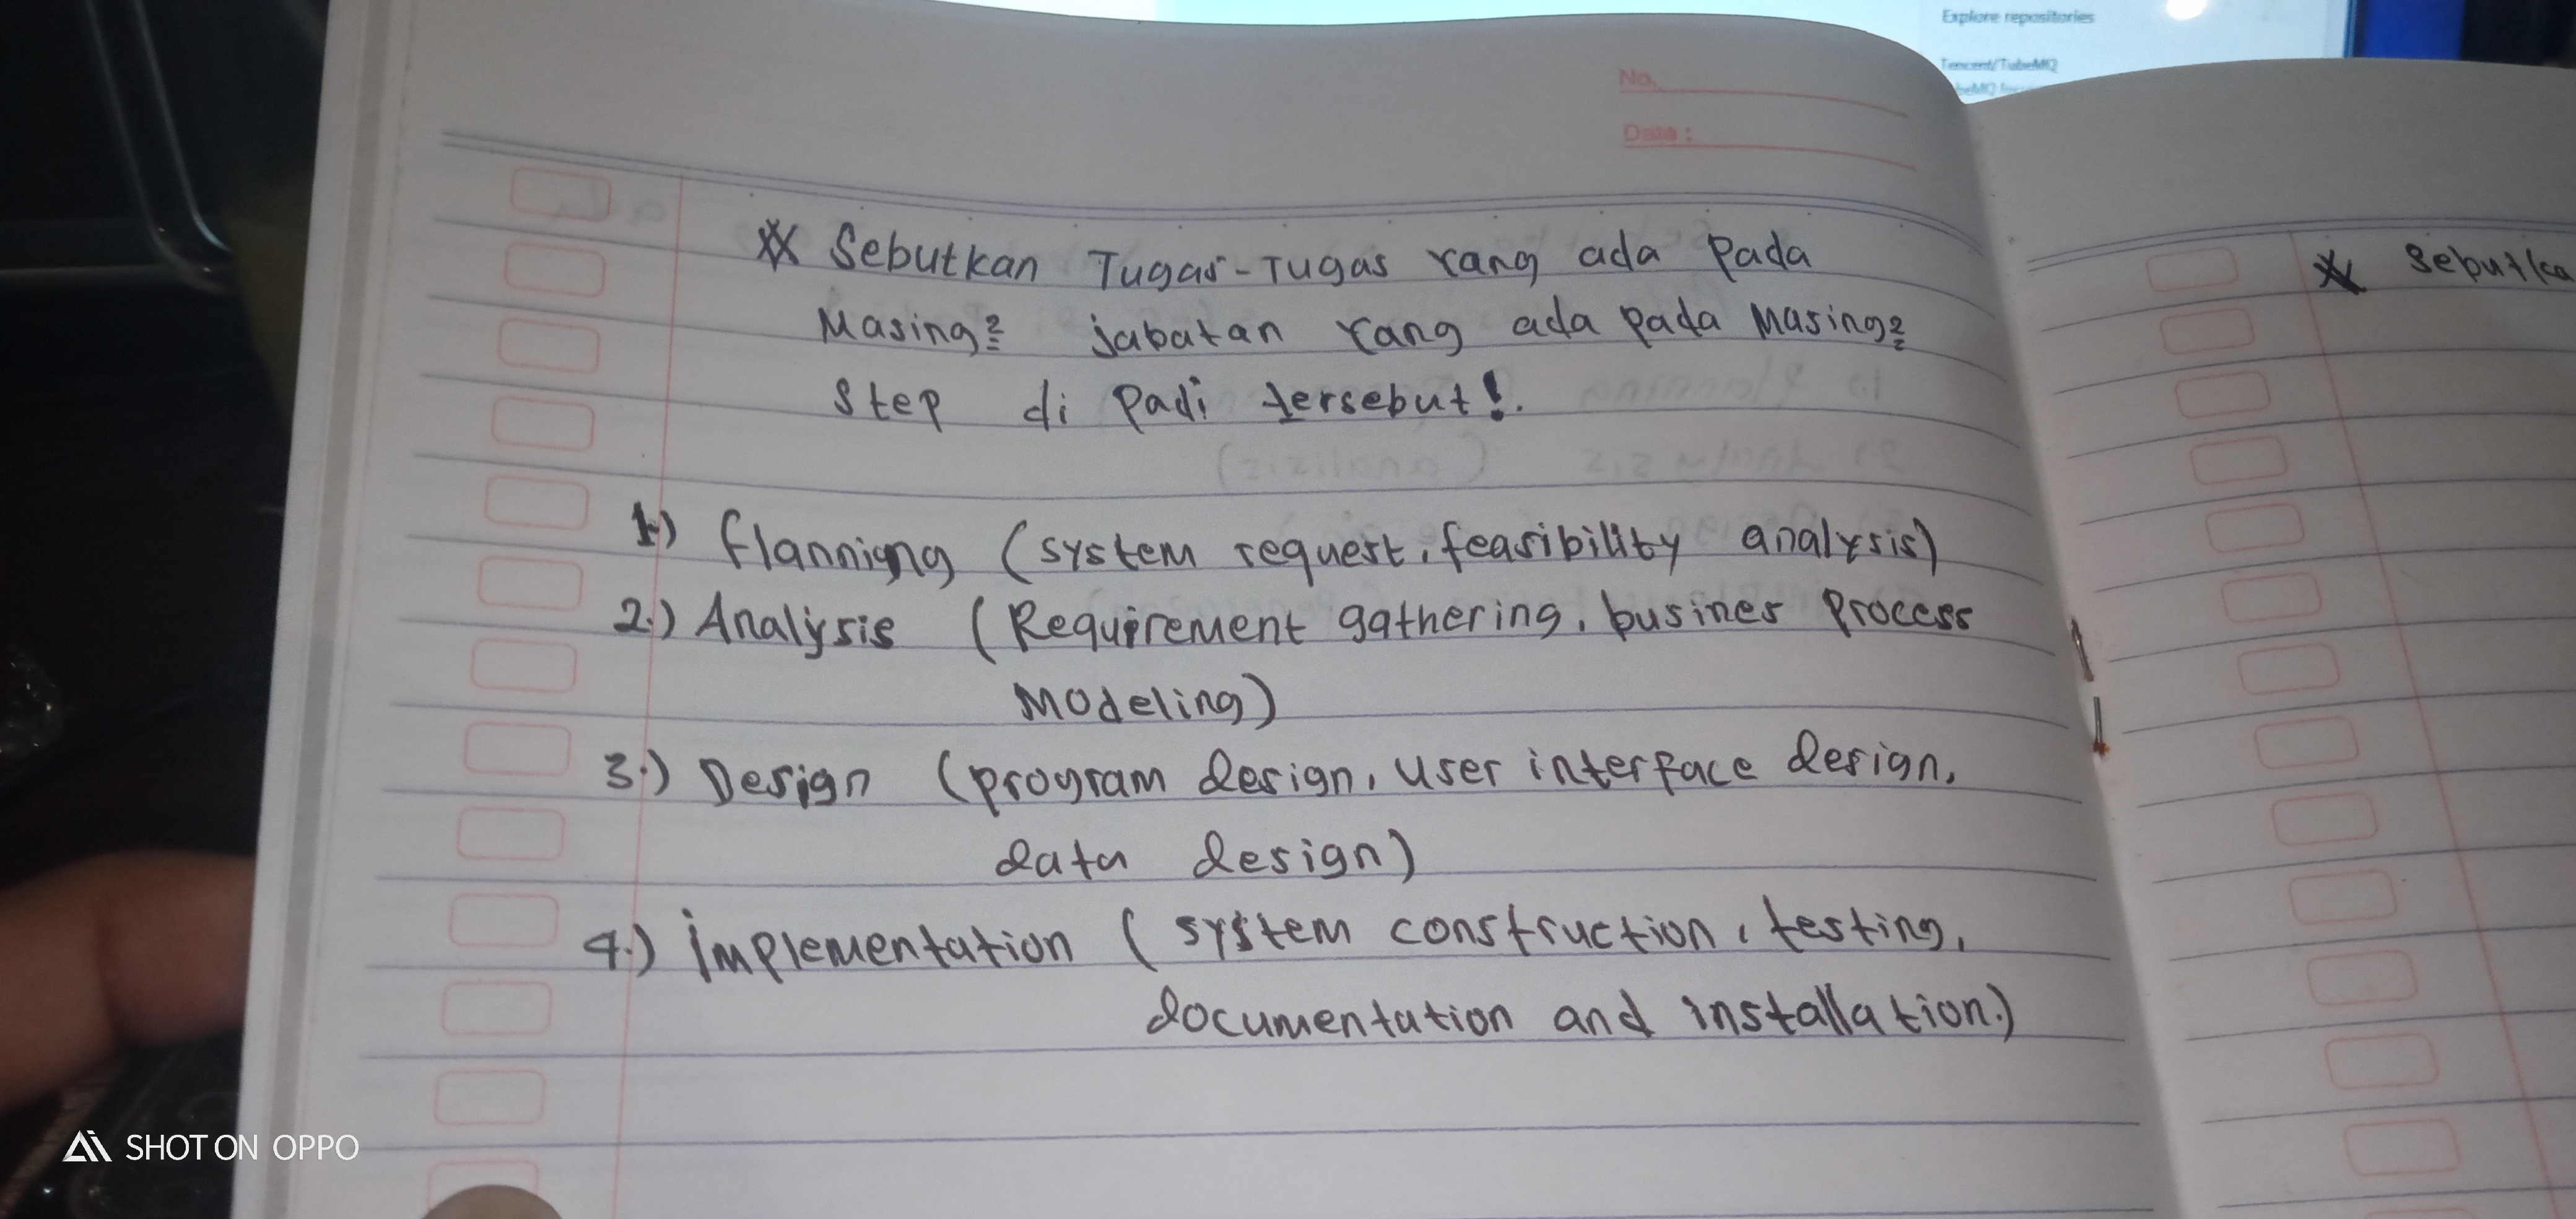 Explore repositories
Tencent/TubeMQ
No.
Date :
Sebutkan Tugas-Tugas Yang ada Pada
Masing2 jabatan Yang ada Pada Masing2
Step di Padi tersebut!.
1.) flannigng (system request, feasibility analysis)
2.) Analysis (Requirement gathering, busines Process
Modeling)
3.) Design (program design, User interface design,
data design)
4.) implementation ( system construction, testing,
documentation and installation.)
Sebutka
SHOT ON OPPO